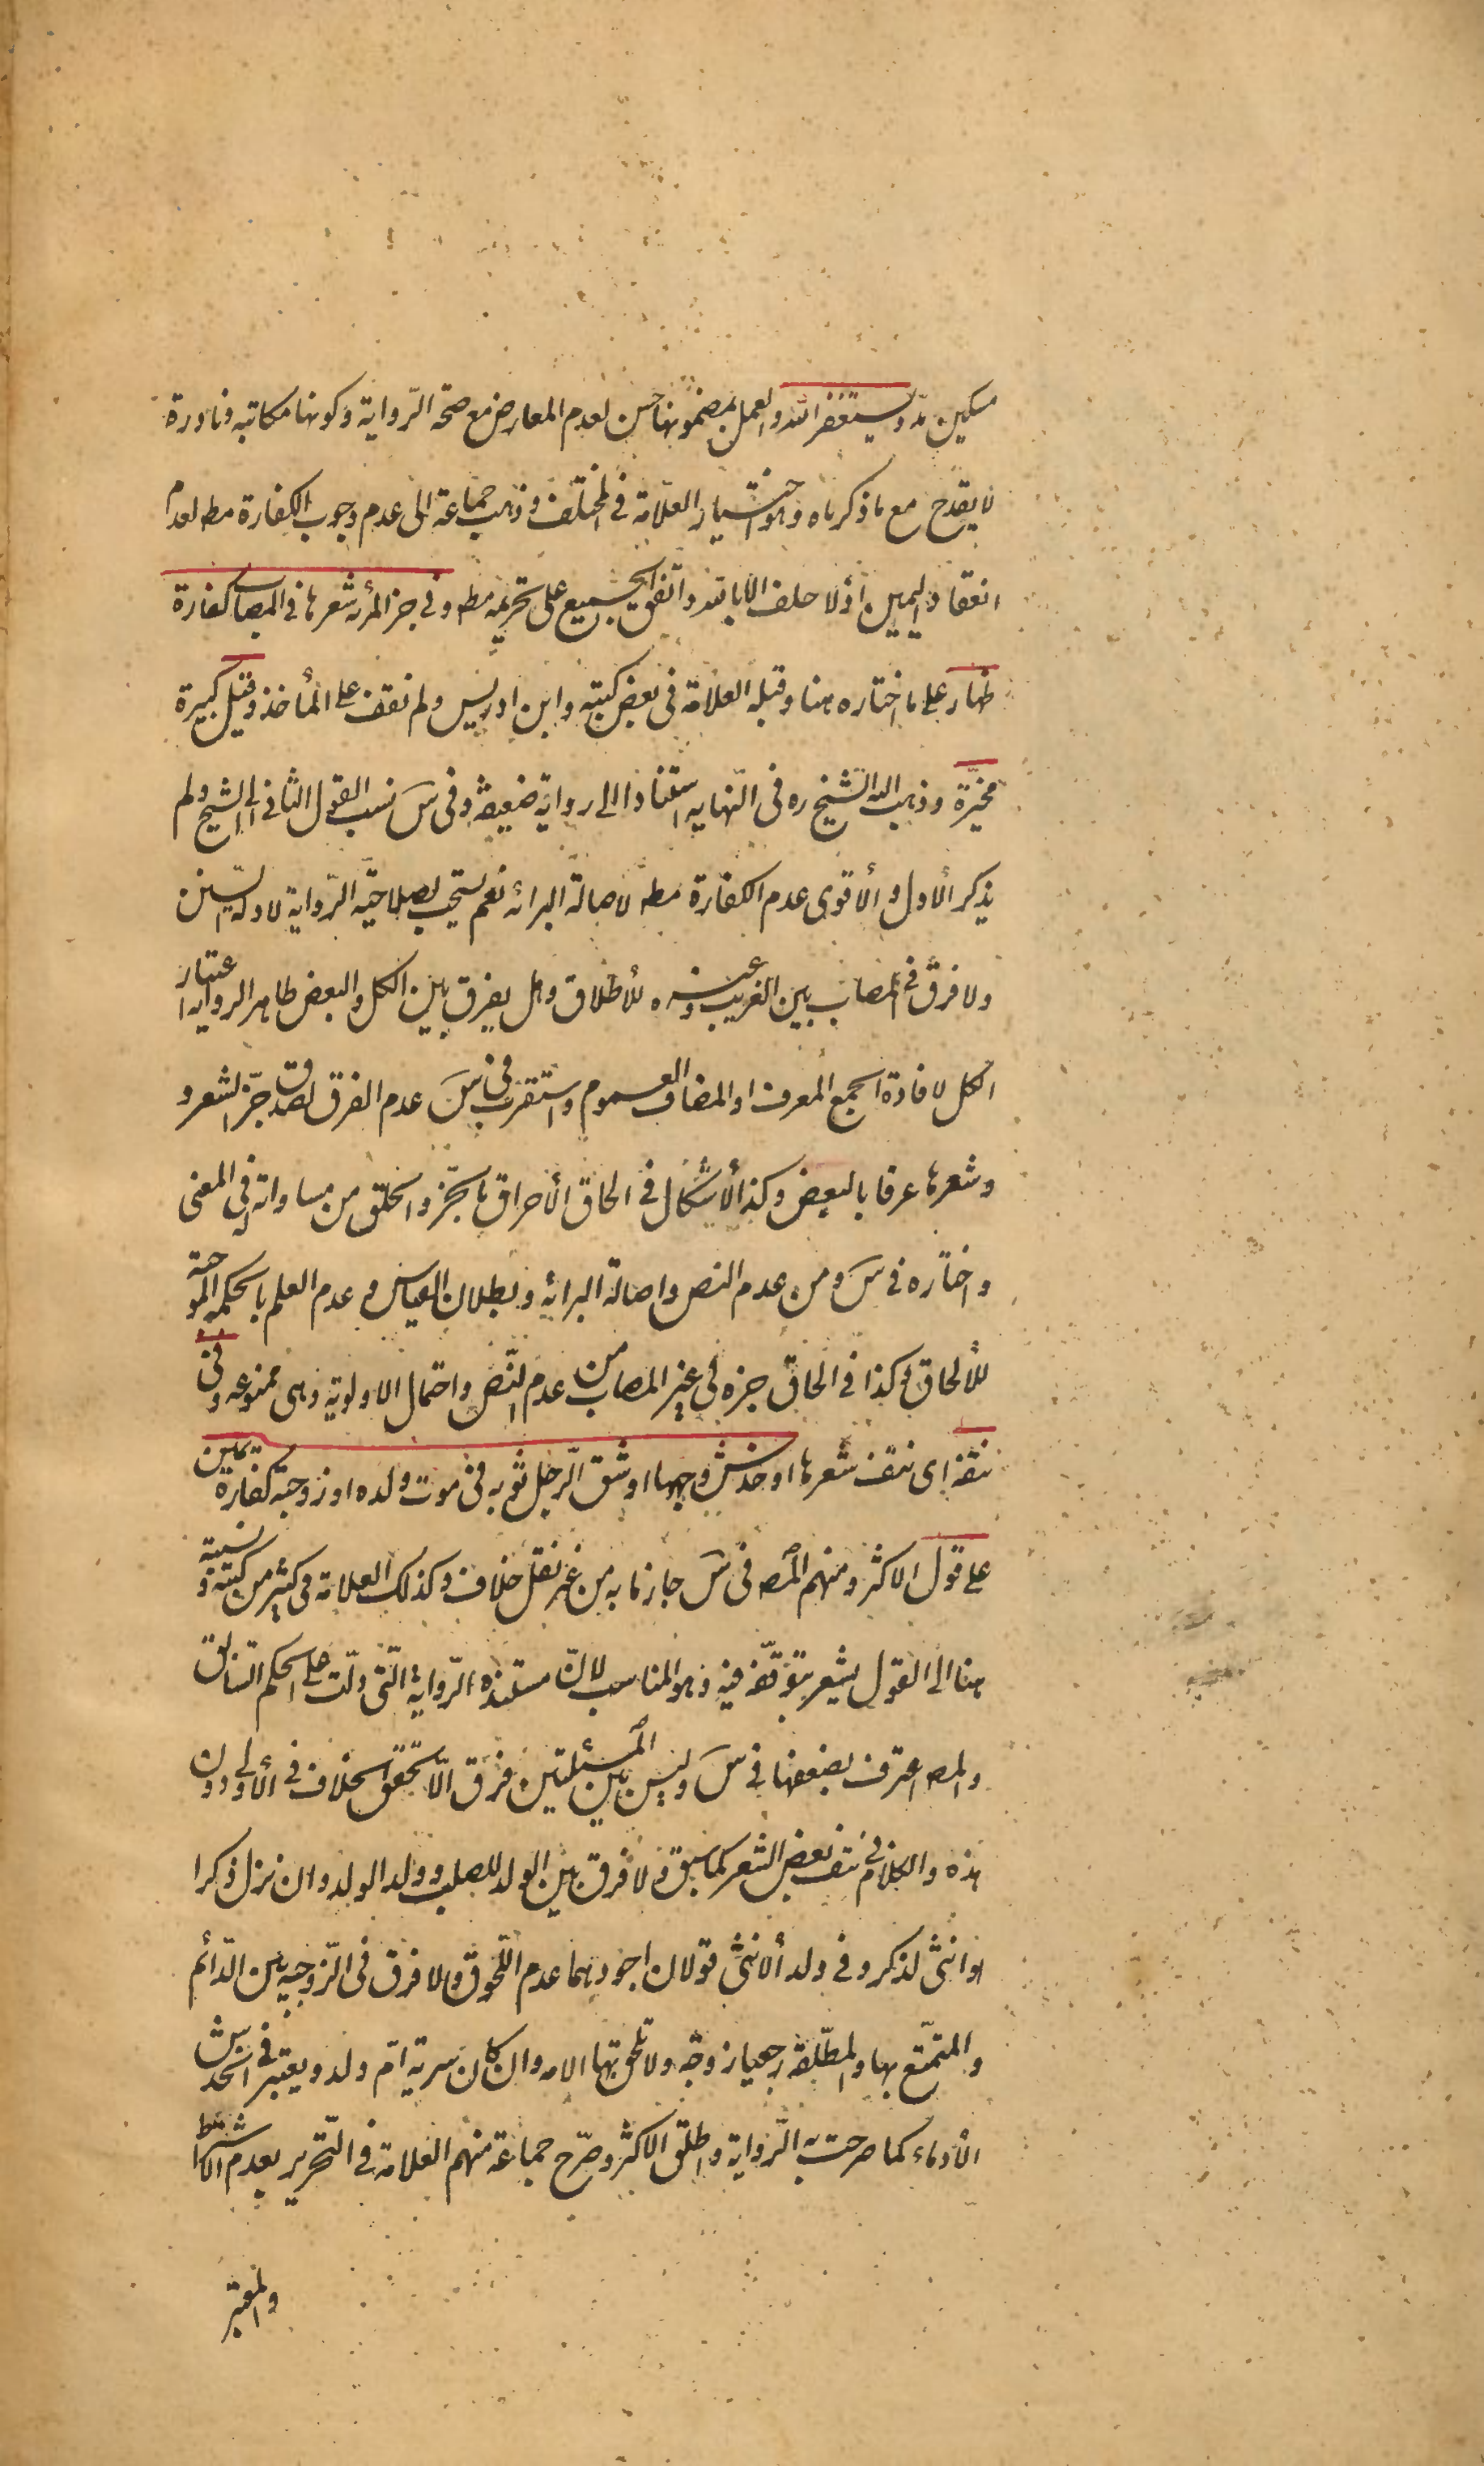 مسكين مدّ ويستغفر الله والعمل بمضمونها حسن لعدم المعارض مع صحة الرّواية وكونها مكاتبه ونادرة
لا يقدح مع ما ذكرناه وهو اختيار العلّامة في المختلف وذهب جماعة الى عدم وجوب الكفارة مطه لعدم
انعقاد اليمين اذ لا حلف الا بالله واتفق الجميع على تحريمه مطه وفي جز المرأة شعرها في المصاب كفارة
ظهار على ما اختاره هنا وقبله العلامة في بعض كتبه وابن ادريس ولم نقف على المأخذ وقيل كبيرة
مخيّرة وذهب اليه الشيخ ره في النّهايه استنادا الى رواية ضعيفة وفي س نسب القول الثاني الى الشيخ ولم
يذكر الأول والأقوى عدم الكفارة مطه لاصالة البرائه نعم يستحب لصلاحيّه الرّواية لادلّة السّنن
ولا فرق في المصاب بين القريب وغيره للأطلاق وهل يفرق بين الكل والبعض ظاهر الرواية اعتبار
الكل لافادة الجمع المعرف او المضاف العموم واستقرب في س عدم الفرق لصدق جزّ الشعر و
وشعرها عرفا بالبعض وكذا الأشكال في الحاق الأحراق بالجزّ والحلق من مساواته في المعنى
واختاره في س ومن عدم النص واصالة البرائه وبطلان القياس وعدم العلم بالحكمه الموجبة
للألحاق وكذا في الحاق جزه في غير المصاب من عدم النّص واحتمال الاولوية وهي ممنوعه وفي
نتفه اى نتف شعرها او خدش وجهها او شق الرّجل ثوبه في موت ولده او زوجته كفارة يمين
على قول الاكثر ومنهم المصـ في س جازما به من غير نقل خلاف وكذلك العلامة في كثير من كتبه ونسبته
هنا الى القول يشير بتوقّفه فيه وهو المناسب لانّ مستنده الرّواية الّتي دلّت على الحكم السّابق
والمصـ اعترف بضعفها في س وليس بين المسئلتين فرق الّا تحقّق الخلاف في الأولى دون
هذه والكلام في نتف بعض الشعر كما سبق ولا فرق بين الولد للصلب وولد الولد وان نزل ذكرا
او انثى لذكر وفي ولد الأنثى قولان اجودهما عدم اللّحوق ولا فرق في الزّوجيه بين الدّائم
والمتمتّع بها والمطلّقة رجعيا زوجة ولا تلحق بها الامه وان كان سرية امّ ولد ويعتبر في الخدش
الأدماء كما صرحت به الرّواية واطلق الاكثر وصرّح جماعة منهم العلامة في التّحرير بعدم الاشتراط
والمعتبر